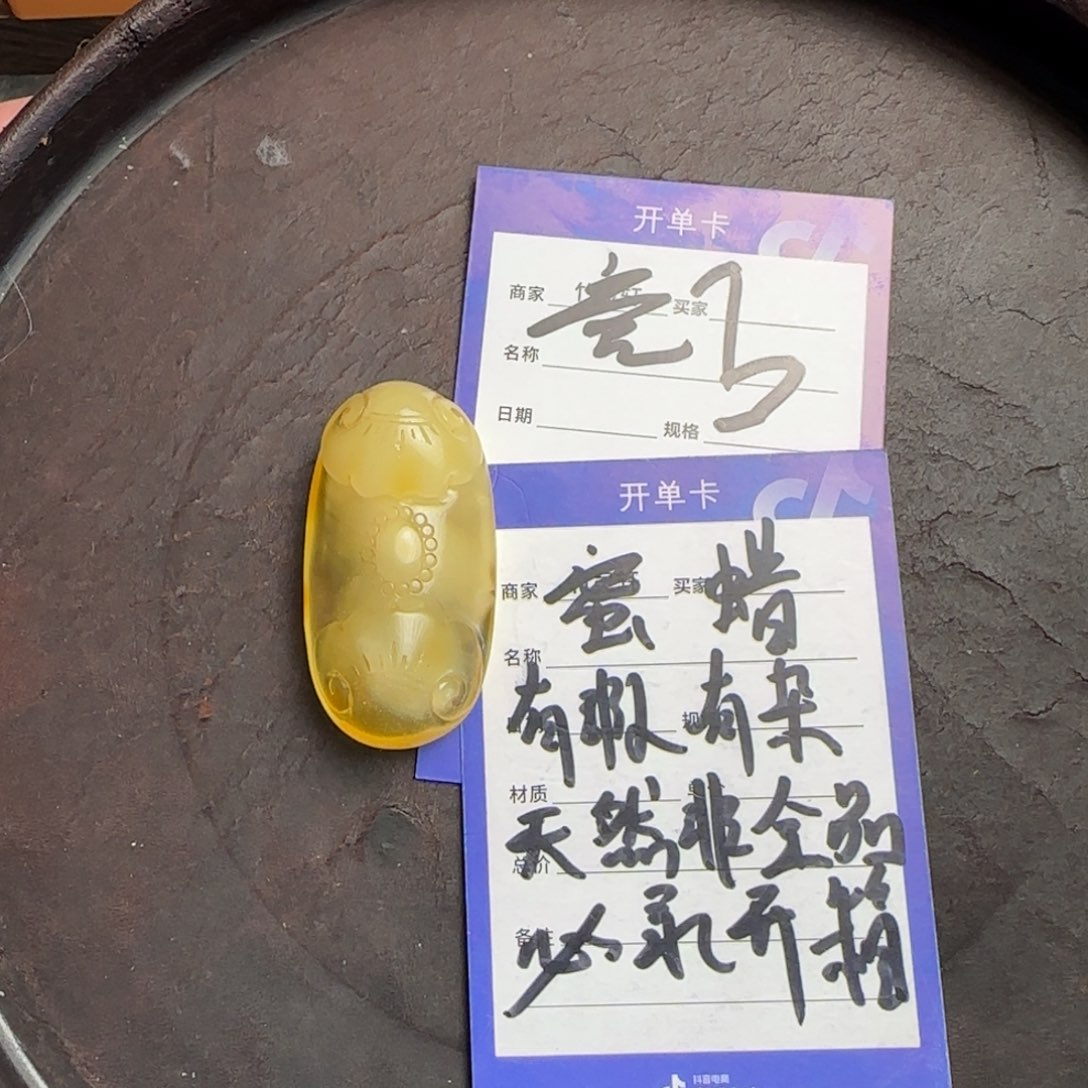 开单卡
商家 买家
名称
日期 规格
开单卡
商家 买家
蜜 蜡
名称
有瑕 有杂
材质
天然非全品
总价
备注
必录开箱
抖音电商